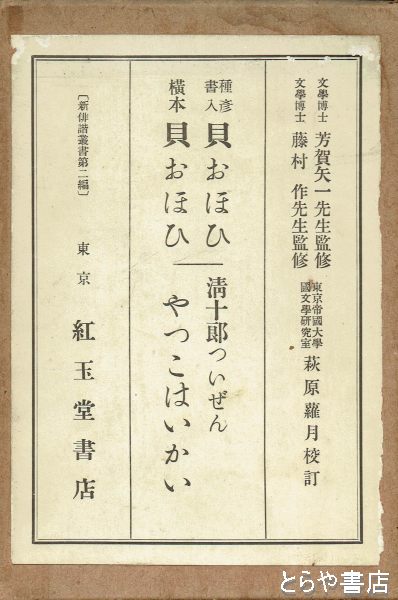 文學博士 芳賀矢一先生監修
文學博士 藤村 作先生監修
東京帝國大學
國文學研究室
萩原蘿月校訂
種彦
書入
貝おほひ
橫本 貝おほひ
淸十郎ついぜん
やつこはいかい
〔新俳諧叢書第二編〕
東京 紅玉堂書店
とらや書店